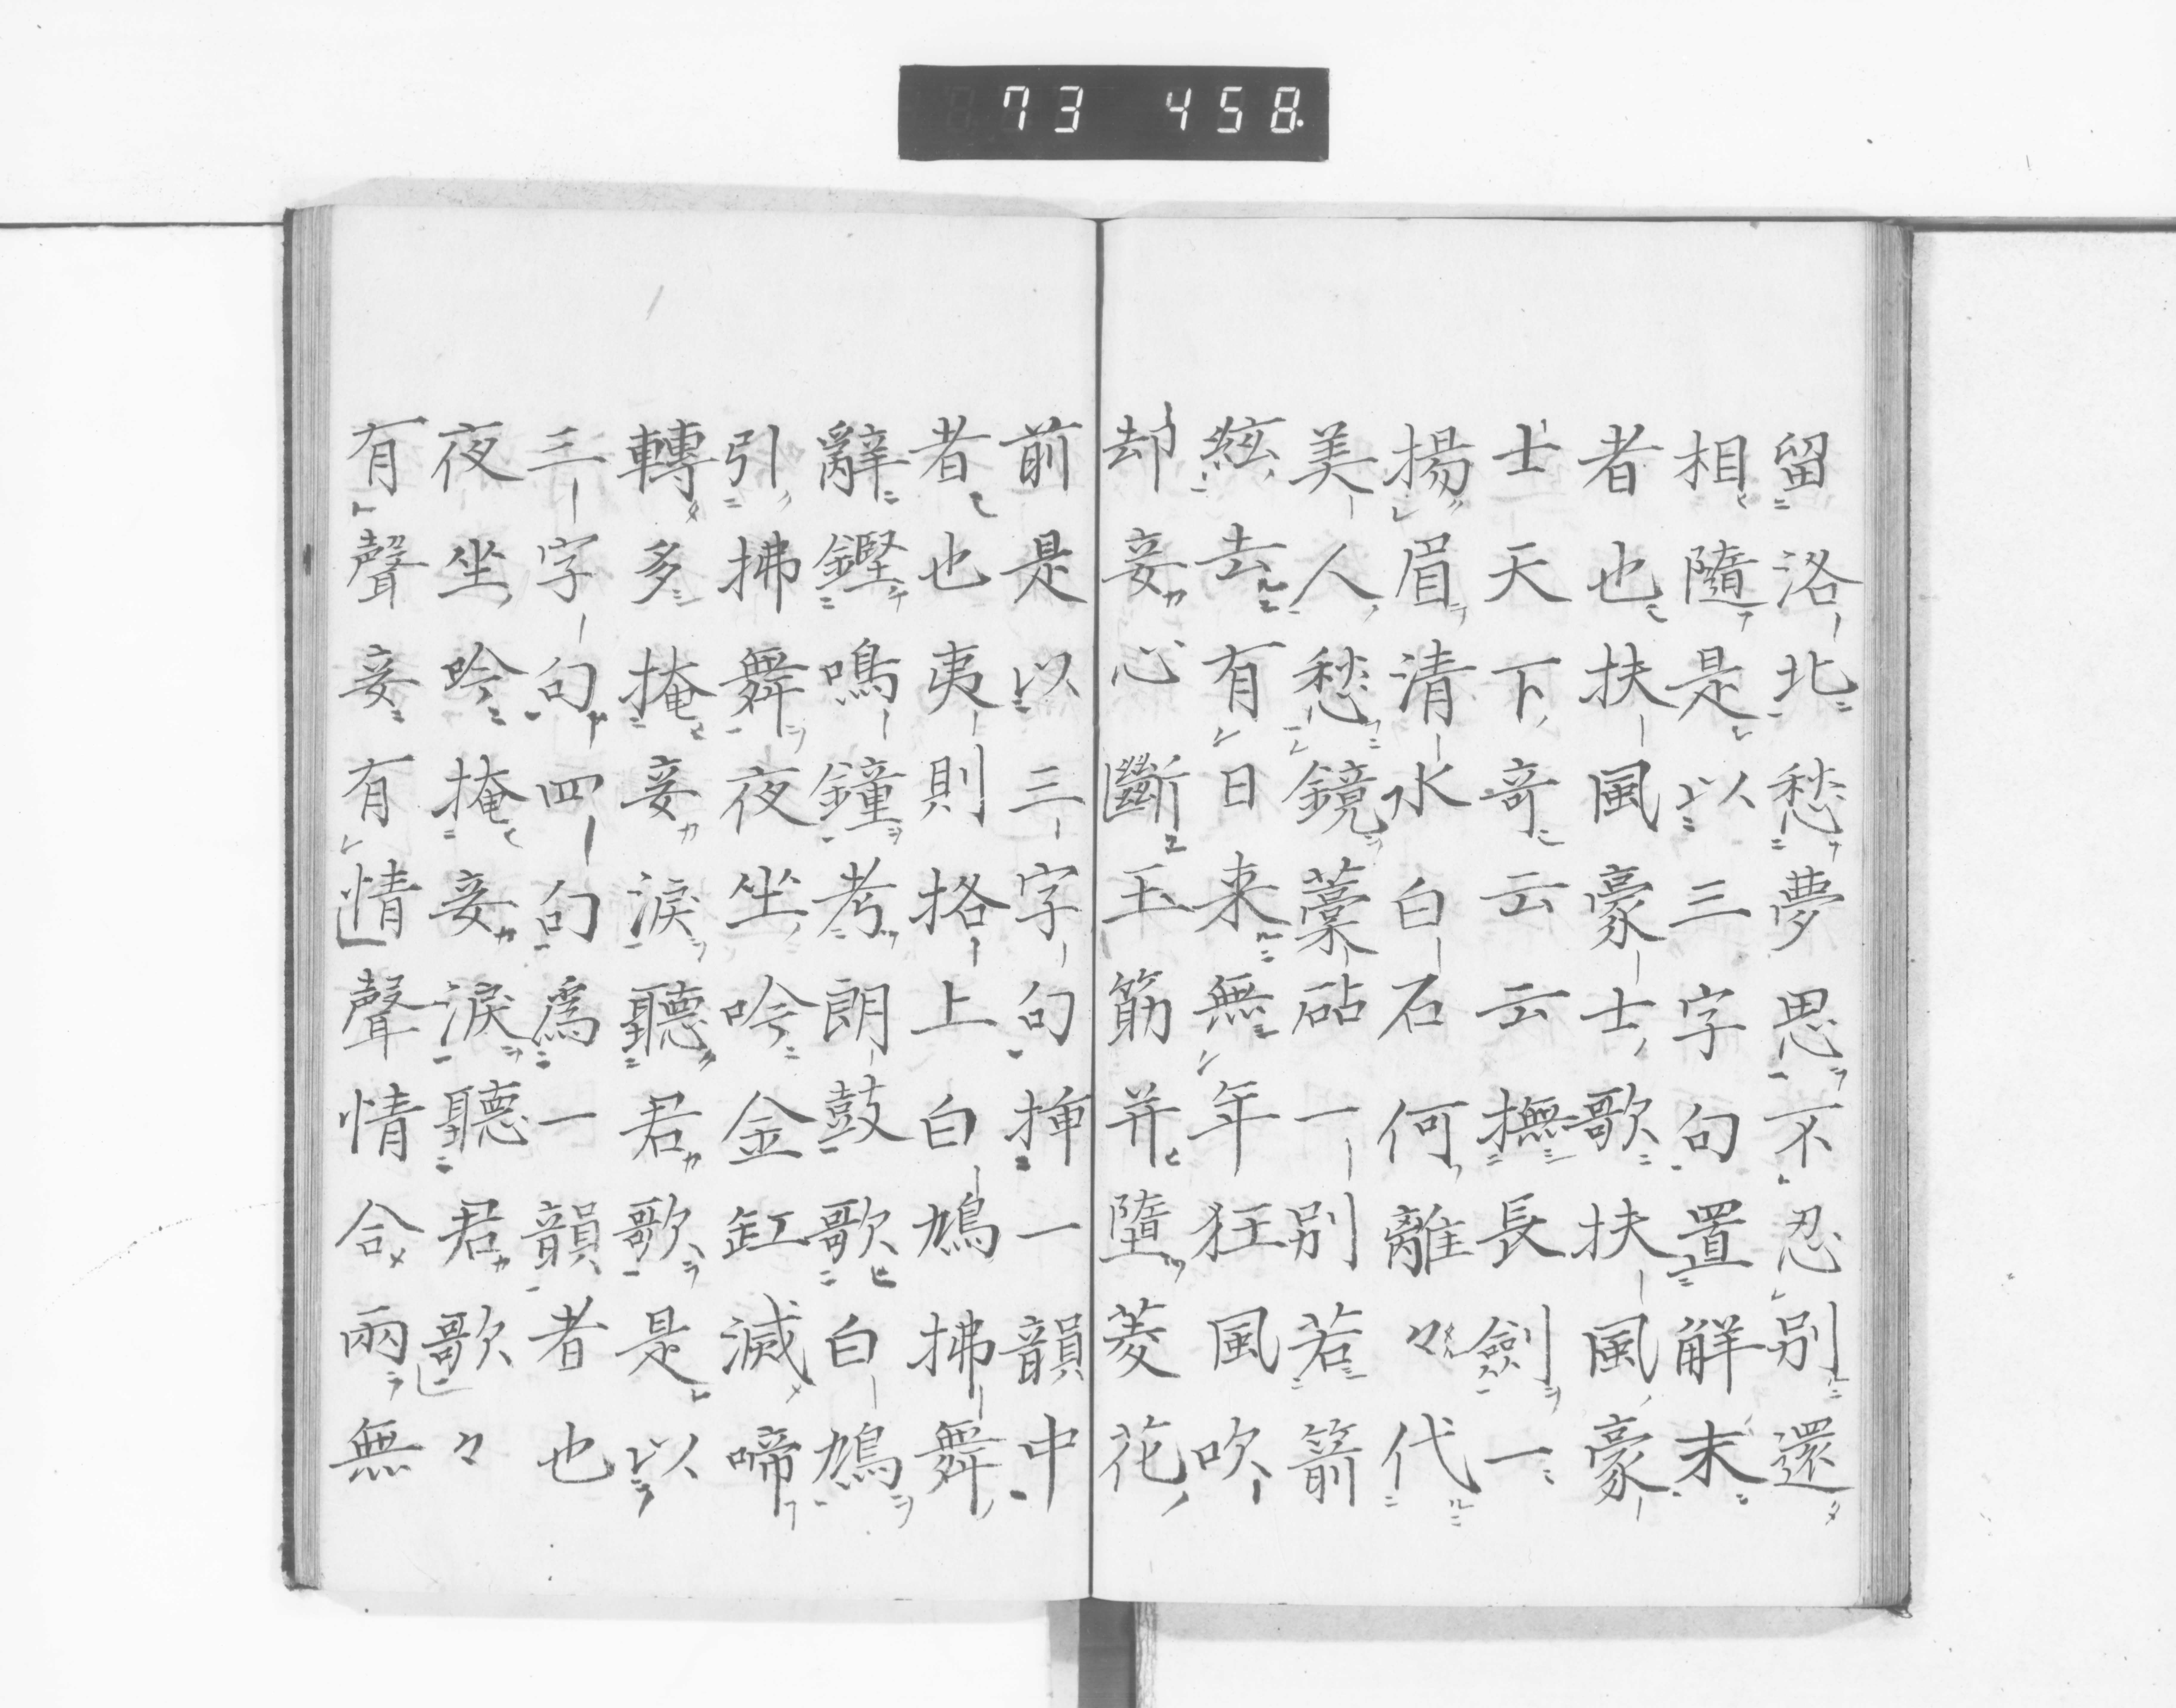 73 458
留洛北愁夢思不忍別還
相隨是以三字句置解末
者也扶風豪士歌扶風豪
士天下奇云云撫長劍一
揚眉清水白石何離々代
美人愁鏡藁砧一別若箭
絃去有日来無年狂風吹
却妾心斷玉筯并墮菱花
前是以三字句揷一韻中
者也夷則挌上白鳩拂舞
辭鏗鳴鐘考朗鼓歌白鳩
引拂舞夜坐吟金缸滅啼
轉多掩妾淚聽君歌是以
三字句四句爲一韻者也
夜坐吟掩妾淚聽君歌々
有聲妾有情聲情合兩無